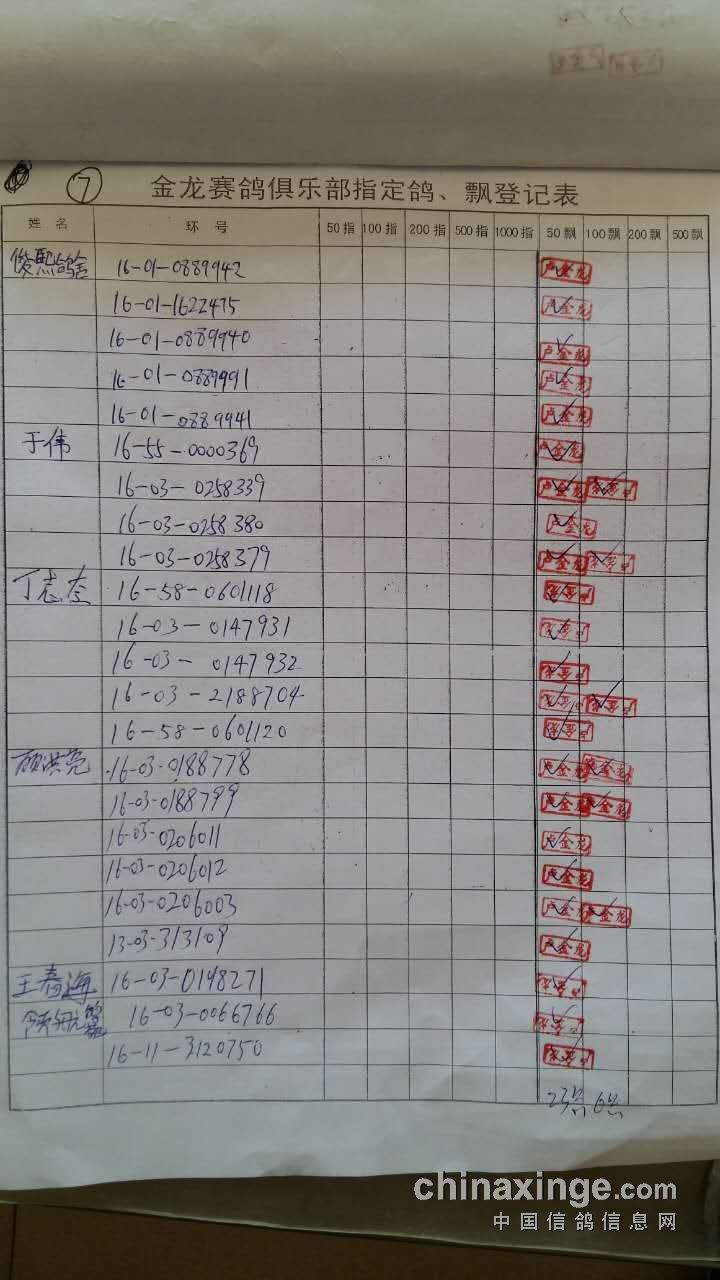 ⑦ 金龙赛鸽俱乐部指定鸽、飘登记表
姓 名 环 号 50指 100指 200指 500指 1000指 50飘 100飘 200飘 500飘
俊熙鸽舍 16-01-0889942 卢金龙
16-01-1622475 卢金龙
16-01-0889940 卢金龙
16-01-0889991 卢金龙
16-01-0889941 卢金龙
于伟 16-55-0000369 卢金龙
16-03-0258339 卢金龙
16-03-0258380 卢金龙
16-03-0258379 卢金龙
丁志奎 16-58-0601118
16-03-0147931
16-03-0147932
16-03-2188704
16-58-0601120
顾洪亮 16-03-0188778 卢金龙 卢金龙
16-03-0188799 卢金龙 卢金龙
16-03-0206011 卢金龙
16-03-0206012 卢金龙
16-03-0206003 卢金龙 卢金龙
13-03-313109 卢金龙
王春海 16-03-0148271
16-03-0066766
16-11-3120750
chinaxinge.com
中国信鸽信息网